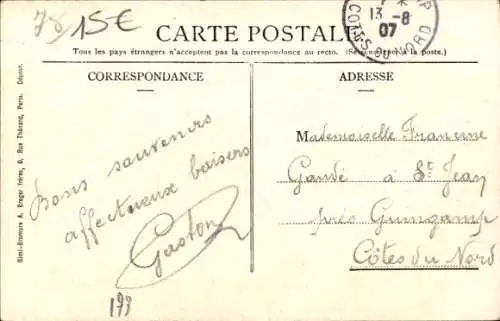 78 15€
CARTE POSTALE
Tous les pays étrangers n'acceptent pas la correspondance au recto. (Se à la poste.)
13 -8
07
COTES-DU-NORD
CORRESPONDANCE
ADRESSE
Bons souvenirs
affectueux baisers
Gaston
Mademoiselle Francine
Gardé à St Jean
près Guingamp
Côtes du Nord
193
Simili-Gravure A. Breger frères, 9, Rue Thénard, Paris. Déposé.